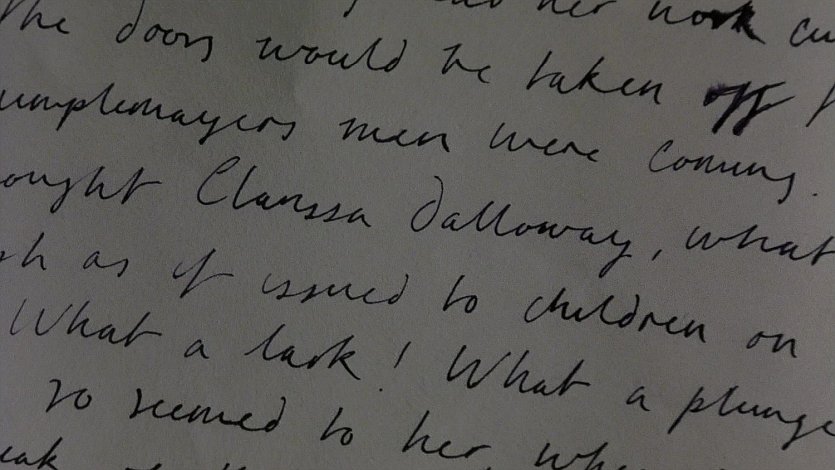 her work cu
The doors would be taken off
umplemayers men were coming.
ought Clarissa Dalloway, what
sh as if issued to children on
What a lark! What a plunge
so seemed to her, whe
eak